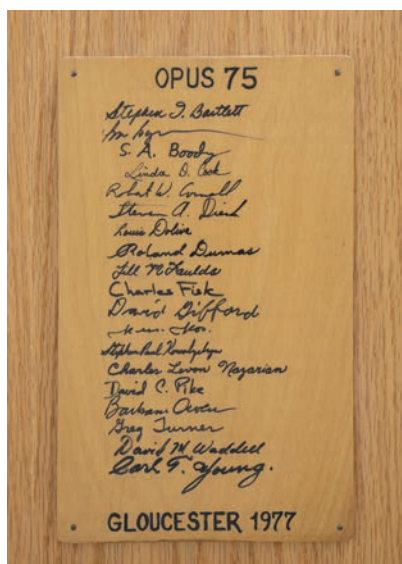 OPUS 75
Stephen I. Bartlett
S. A. Boody
Linda D. Cook
Robert W. Cornell
Steven A. Dieck
Louis Dolive
Roland Dumas
Jill McFaulds
Charles Fisk
David Gifford
Stephen Paul
Charles Levon Nazarian
David C. Pike
Barbara Owen
Greg Turner
David M. Waddell
Carl F. Young.
GLOUCESTER 1977